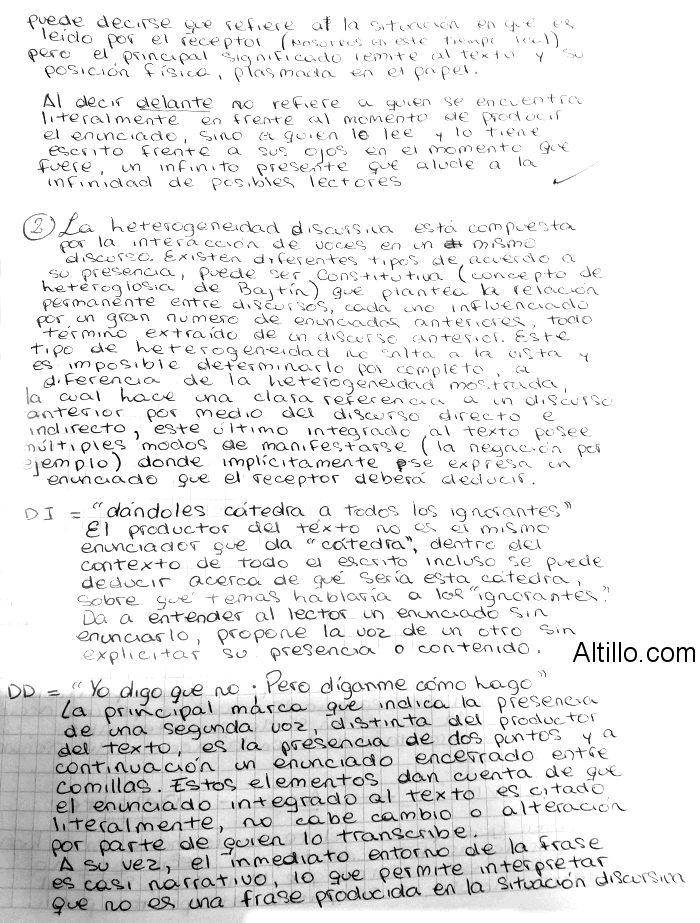 puede decirse que refiere a la situación en que es
leído por el receptor (nosotros en este tiempo real)
pero el principal significado remite al texto y su
posición física, plasmada en el papel.
Al decir delante no refiere a quien se encuentra
literalmente en frente al momento de producir
el enunciado, sino a quien lo lee y lo tiene
escrito frente a sus ojos en el momento que
fuere, un infinito presente que alude a la
infinidad de posibles lectores
2 La heterogeneidad discursiva está compuesta
por la interacción de voces en un mismo
discurso. Existen diferentes tipos de acuerdo a
su presencia, puede ser Constitutiva (concepto de
heteroglosia de Bajtín) que plantea la relación
permanente entre discursos, cada uno influenciado
por un gran número de enunciados anteriores, todo
término extraído de un discurso anterior. Este
tipo de heterogeneidad no salta a la vista y
es imposible determinarlo por completo, a
diferencia de la heterogeneidad mostrada,
la cual hace una clara referencia a un discurso
anterior por medio del discurso directo e
indirecto, este último integrado al texto posee
múltiples modos de manifestarse (la negación por
ejemplo) donde implícitamente se expresa un
enunciado que el receptor deberá deducir.
DI = "dándoles cátedra a todos los ignorantes"
El productor del texto no es el mismo
enunciador que da "cátedra", dentro del
contexto de todo el escrito incluso se puede
deducir acerca de qué sería esta cátedra,
sobre qué temas hablaría a los "ignorantes".
Da a entender al lector un enunciado sin
enunciarlo, propone la voz de un otro sin
explicitar su presencia o contenido.
Altillo.com
DD = "Yo digo que no. Pero díganme cómo hago"
La principal marca que indica la presencia
de una segunda voz, distinta del productor
del texto, es la presencia de dos puntos y a
continuación un enunciado encerrado entre
comillas. Estos elementos dan cuenta de que
el enunciado integrado al texto es citado
literalmente, no cabe cambio o alteración
por parte de quien lo transcribe.
A su vez, el inmediato entorno de la frase
es casi narrativo, lo que permite interpretar
que no es una frase producida en la situación discursiva